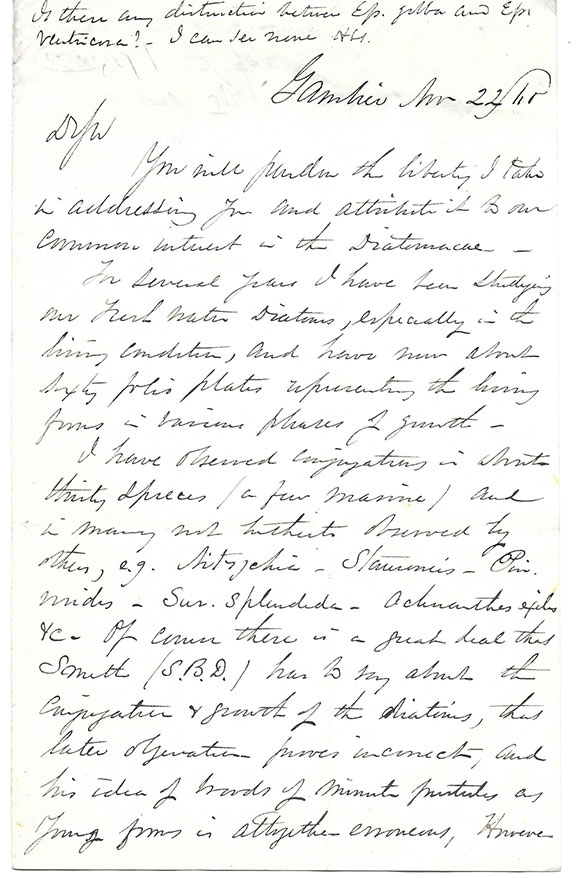 Is there any distinction between Ep. gibba and Ep.
Ventricosa? - I can see none HLS.
Gambier Nov 22
Dr Sir
You will pardon the liberty I take
in addressing you and attribute it to our
common interest in the Diatomaceae -
For several years I have been studying
our Fresh Water Diatoms, especially in the
living condition, and have now about
sixty folio plates representing the living
forms in various phases of growth -
I have observed conjugation in about
thirty species (a few marine) and
in many not hitherto observed by
others, e.g. Nitzschia - Stauroneis - Pin.
viridis - Sur. splendida - Achnanthes exilis
&c - Of course there is a great deal that
Smith (S.B.D.) has to say about the
Conjugation & growth of the diatoms, that
later observation proves incorrect, and
his idea of broods of minute frustules as
young forms is altogether erroneous, However